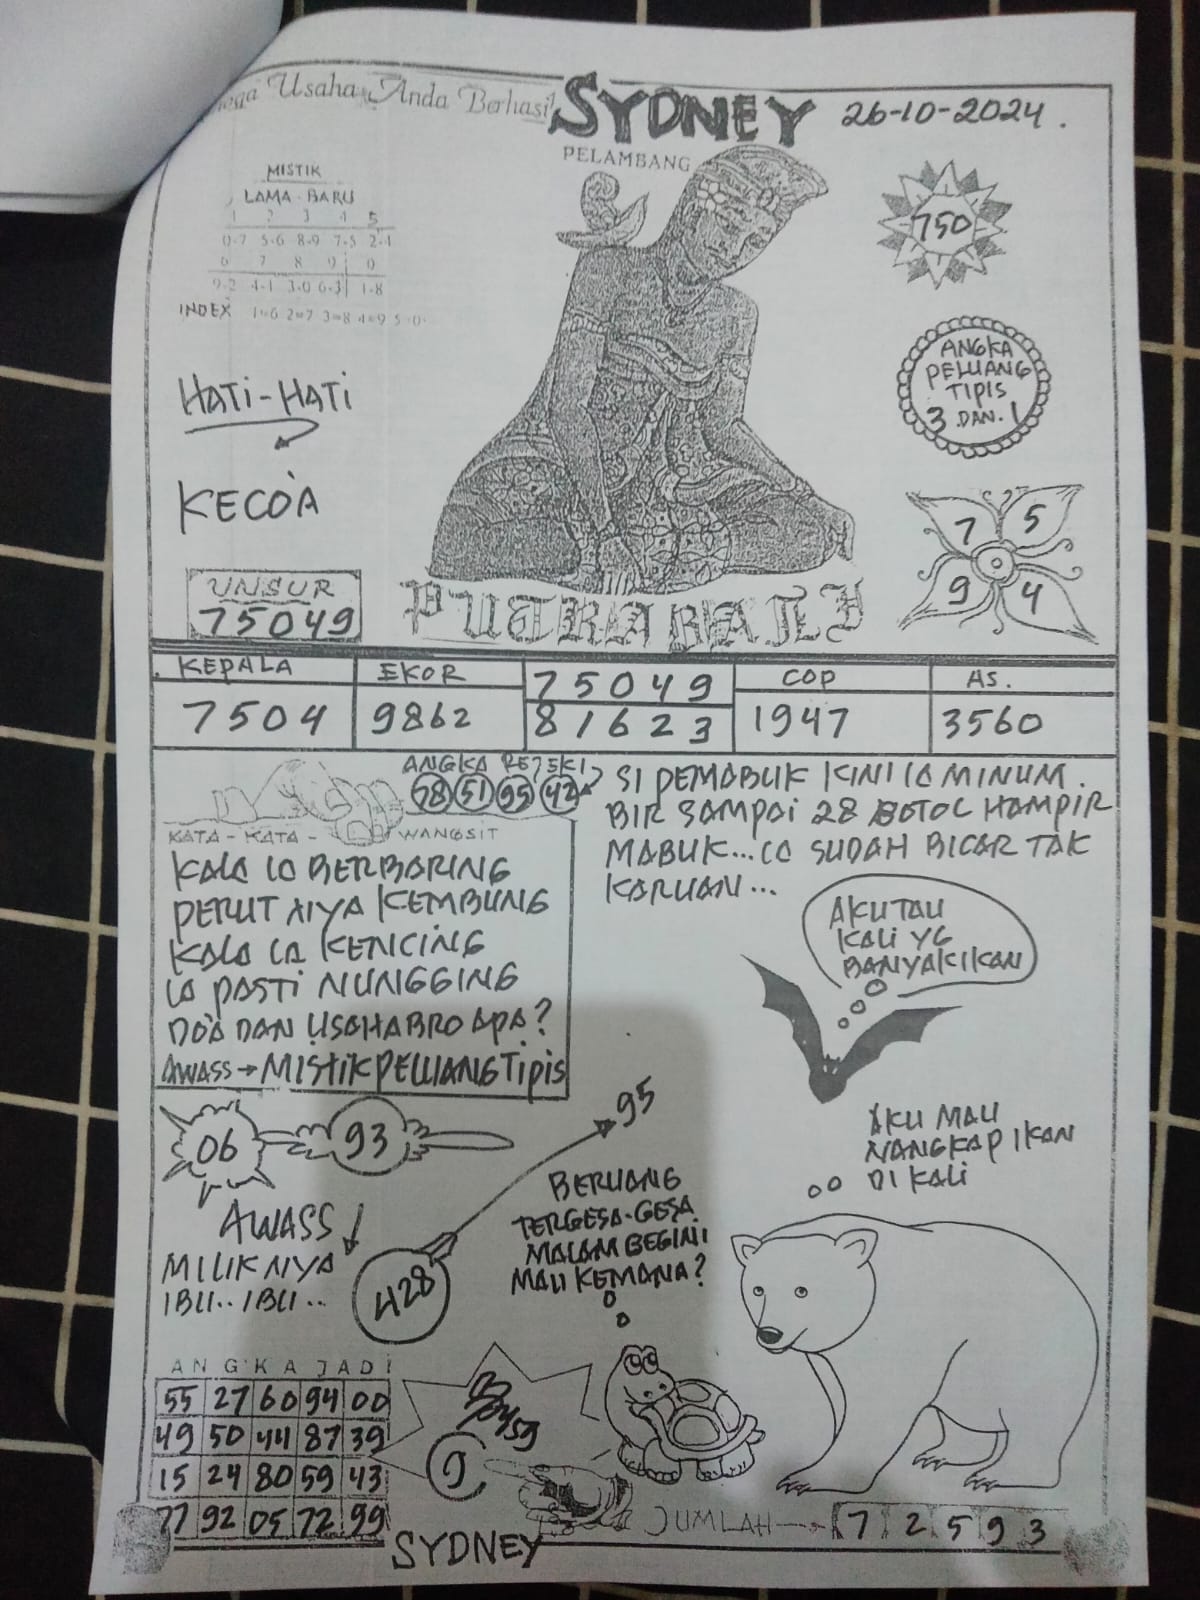 Usaha Anda Berhasil
SYDNEY
26-10-2024.
PELAMBANG
MISTIK
LAMA - BARU
1 2 3 4 5
0-7 5-6 8-9 7-5 2-4
6 7 8 9 0
9-2 4-1 3-0 6-3 1-8
INDEX 1=6 2=7 3=8 4=9 5=0
750
HATI-HATI
KECOA
ANGKA
PELUANG
TIPIS
3 DAN. 1
7 5
9 4
UNSUR
75049
PUTRA BALI
KEPALA EKOR 75049 COP AS.
7504 9862 81623 1947 3560
ANGKA REJEKI
78 51 95 42
SI PEMABUK KINI IA MINUM
BIR SAMPAI 28 BOTOL HAMPIR
MABUK... IA SUDAH BICAR TAK
KARUAN...
KATA - KATA - WANGSIT
KALA IA BERBARING
PERUT NYA KEMBUNG
KALA IA KENCING
IA PASTI NUNGGING
DO'A DAN USAHA BRO APA?
AWASS → MISTIK PELUANG TIPIS
AKU TAU
KALI YG
BANYAK IKAN
06 93
95
AKU MAU
NANGKAP IKAN
DI KALI
AWASS
MILIKNYA
IBU.. IBU..
428
BERUANG
TERGESA-GESA
MALAM BEGINI
MAU KEMANA?
ANGKA JADI
55 27 60 94 00
49 50 44 87 39
15 24 80 59 43
77 92 05 72 99
9
SYDNEY
JUMLAH → 7 2 5 9 3